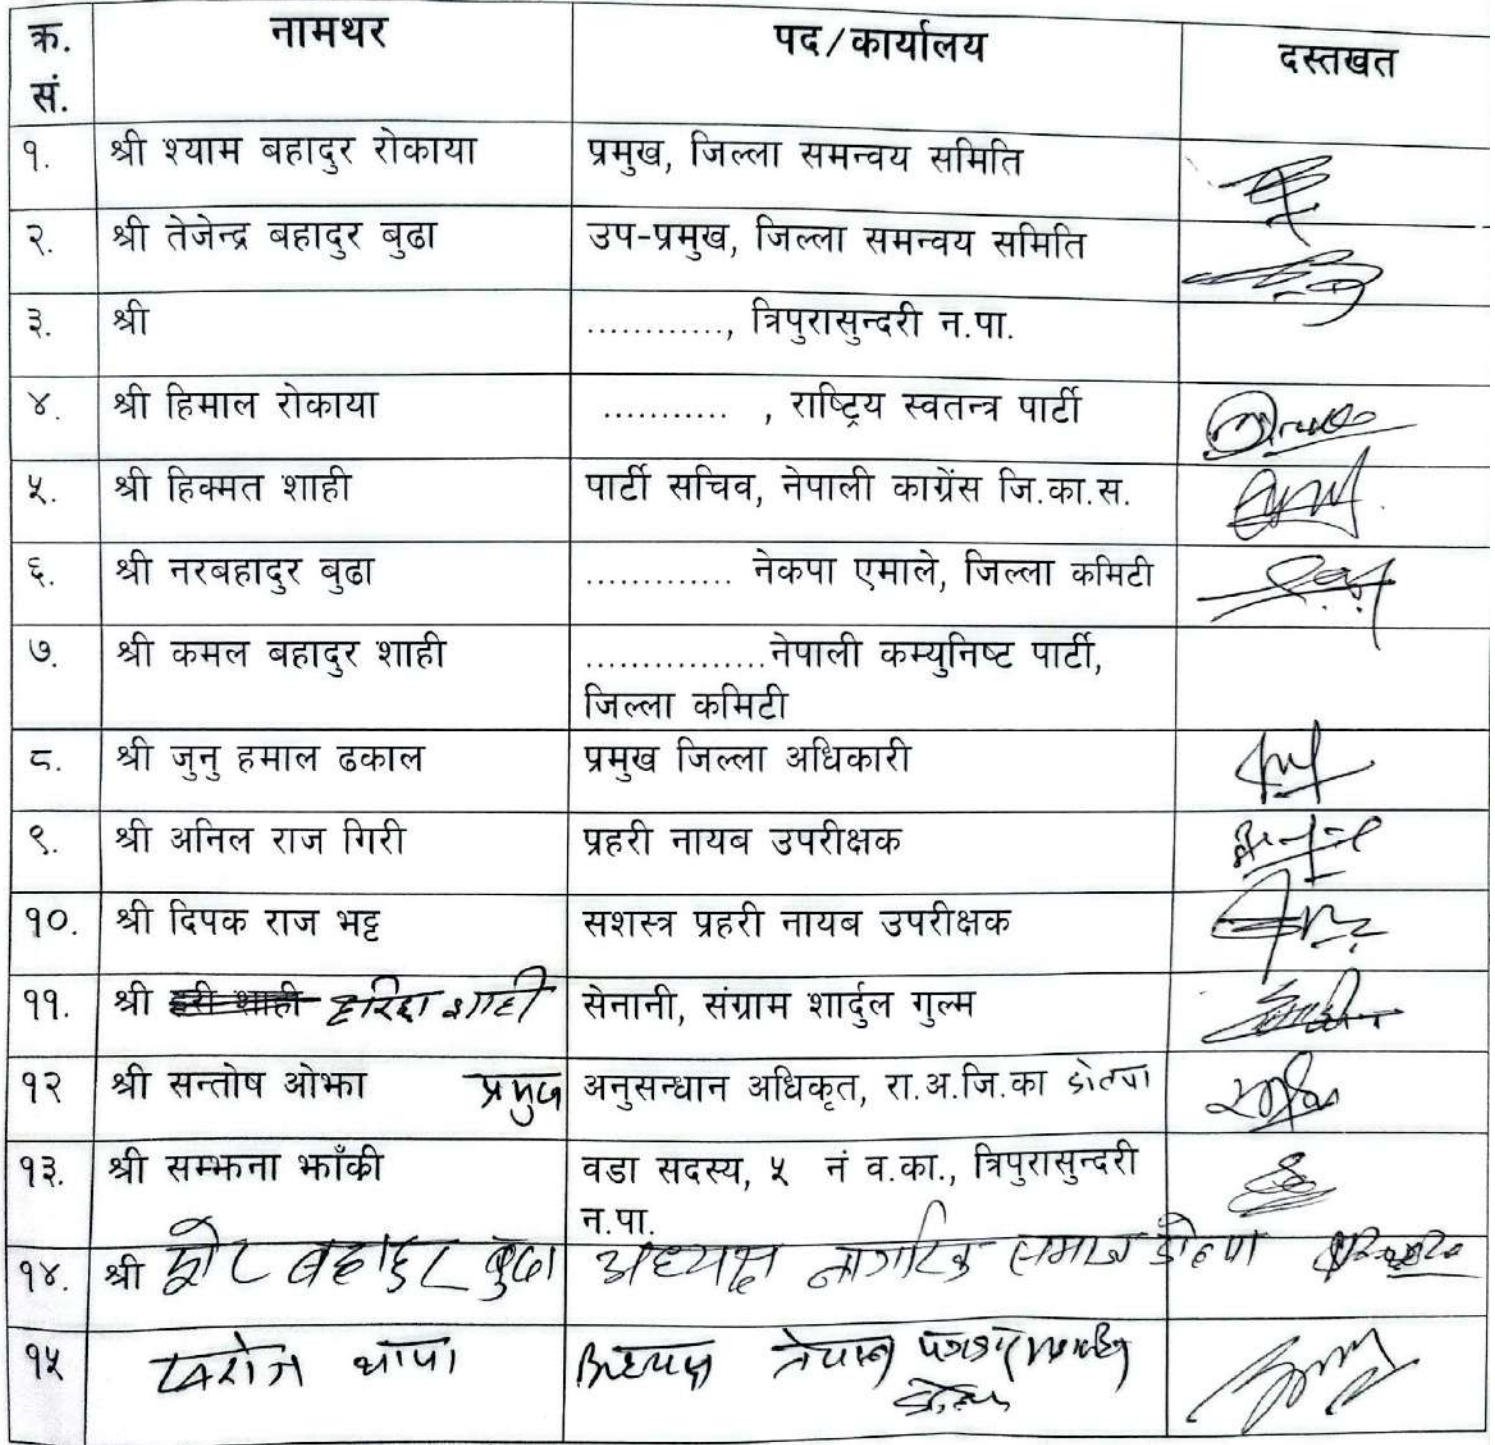 क्र. सं. नामथर पद/कार्यालय दस्तखत
१. श्री श्याम बहादुर रोकाया प्रमुख, जिल्ला समन्वय समिति
२. श्री तेजेन्द्र बहादुर बुढा उप-प्रमुख, जिल्ला समन्वय समिति
३. श्री ............, त्रिपुरासुन्दरी न.पा.
४. श्री हिमाल रोकाया ............ , राष्ट्रिय स्वतन्त्र पार्टी
५. श्री हिक्मत शाही पार्टी सचिव, नेपाली काग्रेंस जि.का.स.
६. श्री नरबहादुर बुढा ............. नेकपा एमाले, जिल्ला कमिटी
७. श्री कमल बहादुर शाही ................नेपाली कम्युनिष्ट पार्टी,
जिल्ला कमिटी
८. श्री जुनु हमाल ढकाल प्रमुख जिल्ला अधिकारी
९. श्री अनिल राज गिरी प्रहरी नायब उपरीक्षक
१०. श्री दिपक राज भट्ट सशस्त्र प्रहरी नायब उपरीक्षक
११. श्री हरी शाही शाही सेनानी, संग्राम शार्दुल गुल्म
१२ श्री सन्तोष ओझा प्रमुख अनुसन्धान अधिकृत, रा.अ.जि.का डोल्पा
१३. श्री सम्झना झाँकी वडा सदस्य, ५ नं व.का., त्रिपुरासुन्दरी
न.पा.
१४. श्री बहादुर बुढा अध्यक्ष नागरिक समाज डोल्पा
१५ सरोज थापा अध्यक्ष नेपाल डोल्पा